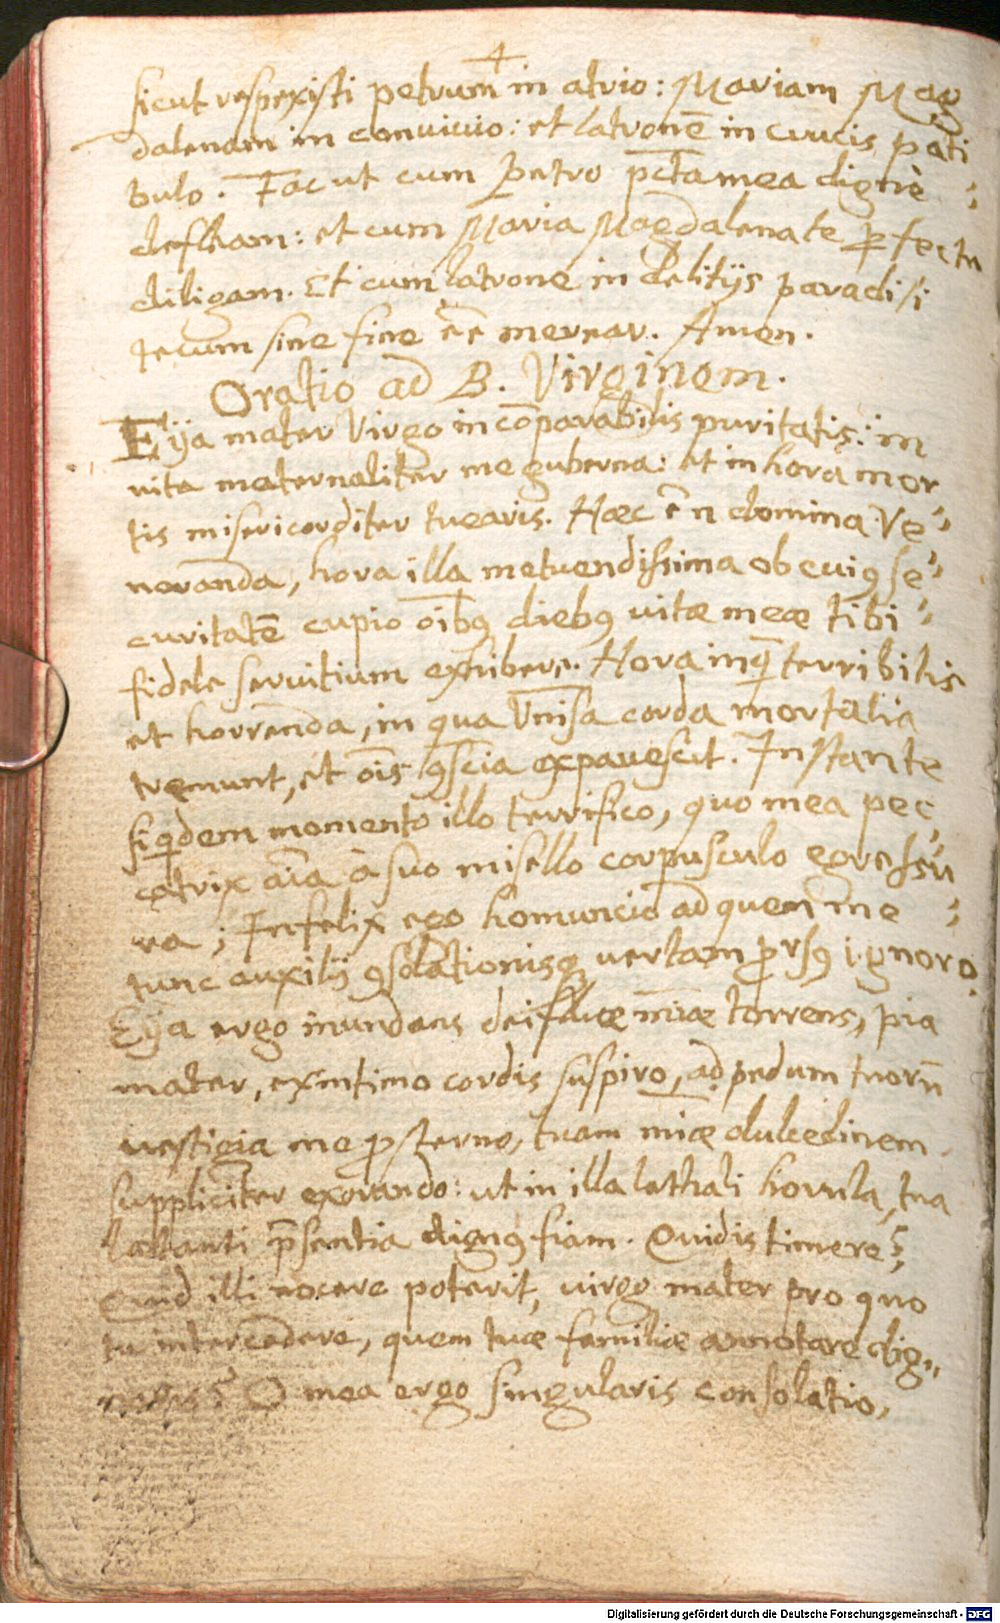 4
sicut respexisti petrum in atrio: Mariam Mag
dalenam in conuiuio: et latronē in crucis pati
bulo. Fac ut cum Petro pctā mea dignè
defleam: et cum Maria Magdalena te ꝑfecte
diligam. Et cum latrone in delitijs paradisi
tecum sine fine eē merear. Amen.
Oratio ad B. Virginem.
Eija mater Virgo incōparabilis puritatis: in
uita maternaliter me guberna: et in hora mor
tis misericorditer tuearis. Haec ē n domina Ve„
neranda, hora illa metuendissima ob cuiꝯ se„
curitatē cupio oībꝯ diebꝯ uitæ meæ tibi
fidele seruitium exhibere. Hora inꝗ terribilis
et horrenda, in qua Vniūsa corda mortalia
tremunt, et oīs ꝯscia expauescit. Instante
siqdem momento illo terrifico, quo mea pec„
catrix aīa à suo misello corpusculo egressu„
ra; Infelix ego homuncio ad quem me
tunc auxilij ꝯsolationisꝗ uertam ꝓrsꝯ ignoro.
Eija ergo inundans deificæ mīæ torrens, pia
mater, ex intimo cordis suspiro, ad pedum tuorū
uestigia me ꝓsterno, tuam mīæ dulcedinem
suppliciter exorando: ut in illa lethali horula, tua
lætanti pn̄sentia dignꝯ fiam. Quid is timere?
Quid illi nocere poterit, virgo mater pro quo
tu intercedere, quem tuæ familiæ annotare dig„
neris? O mea ergo singularis consolatio,
Digitalisierung gefördert durch die Deutsche Forschungsgemeinschaft - DFG